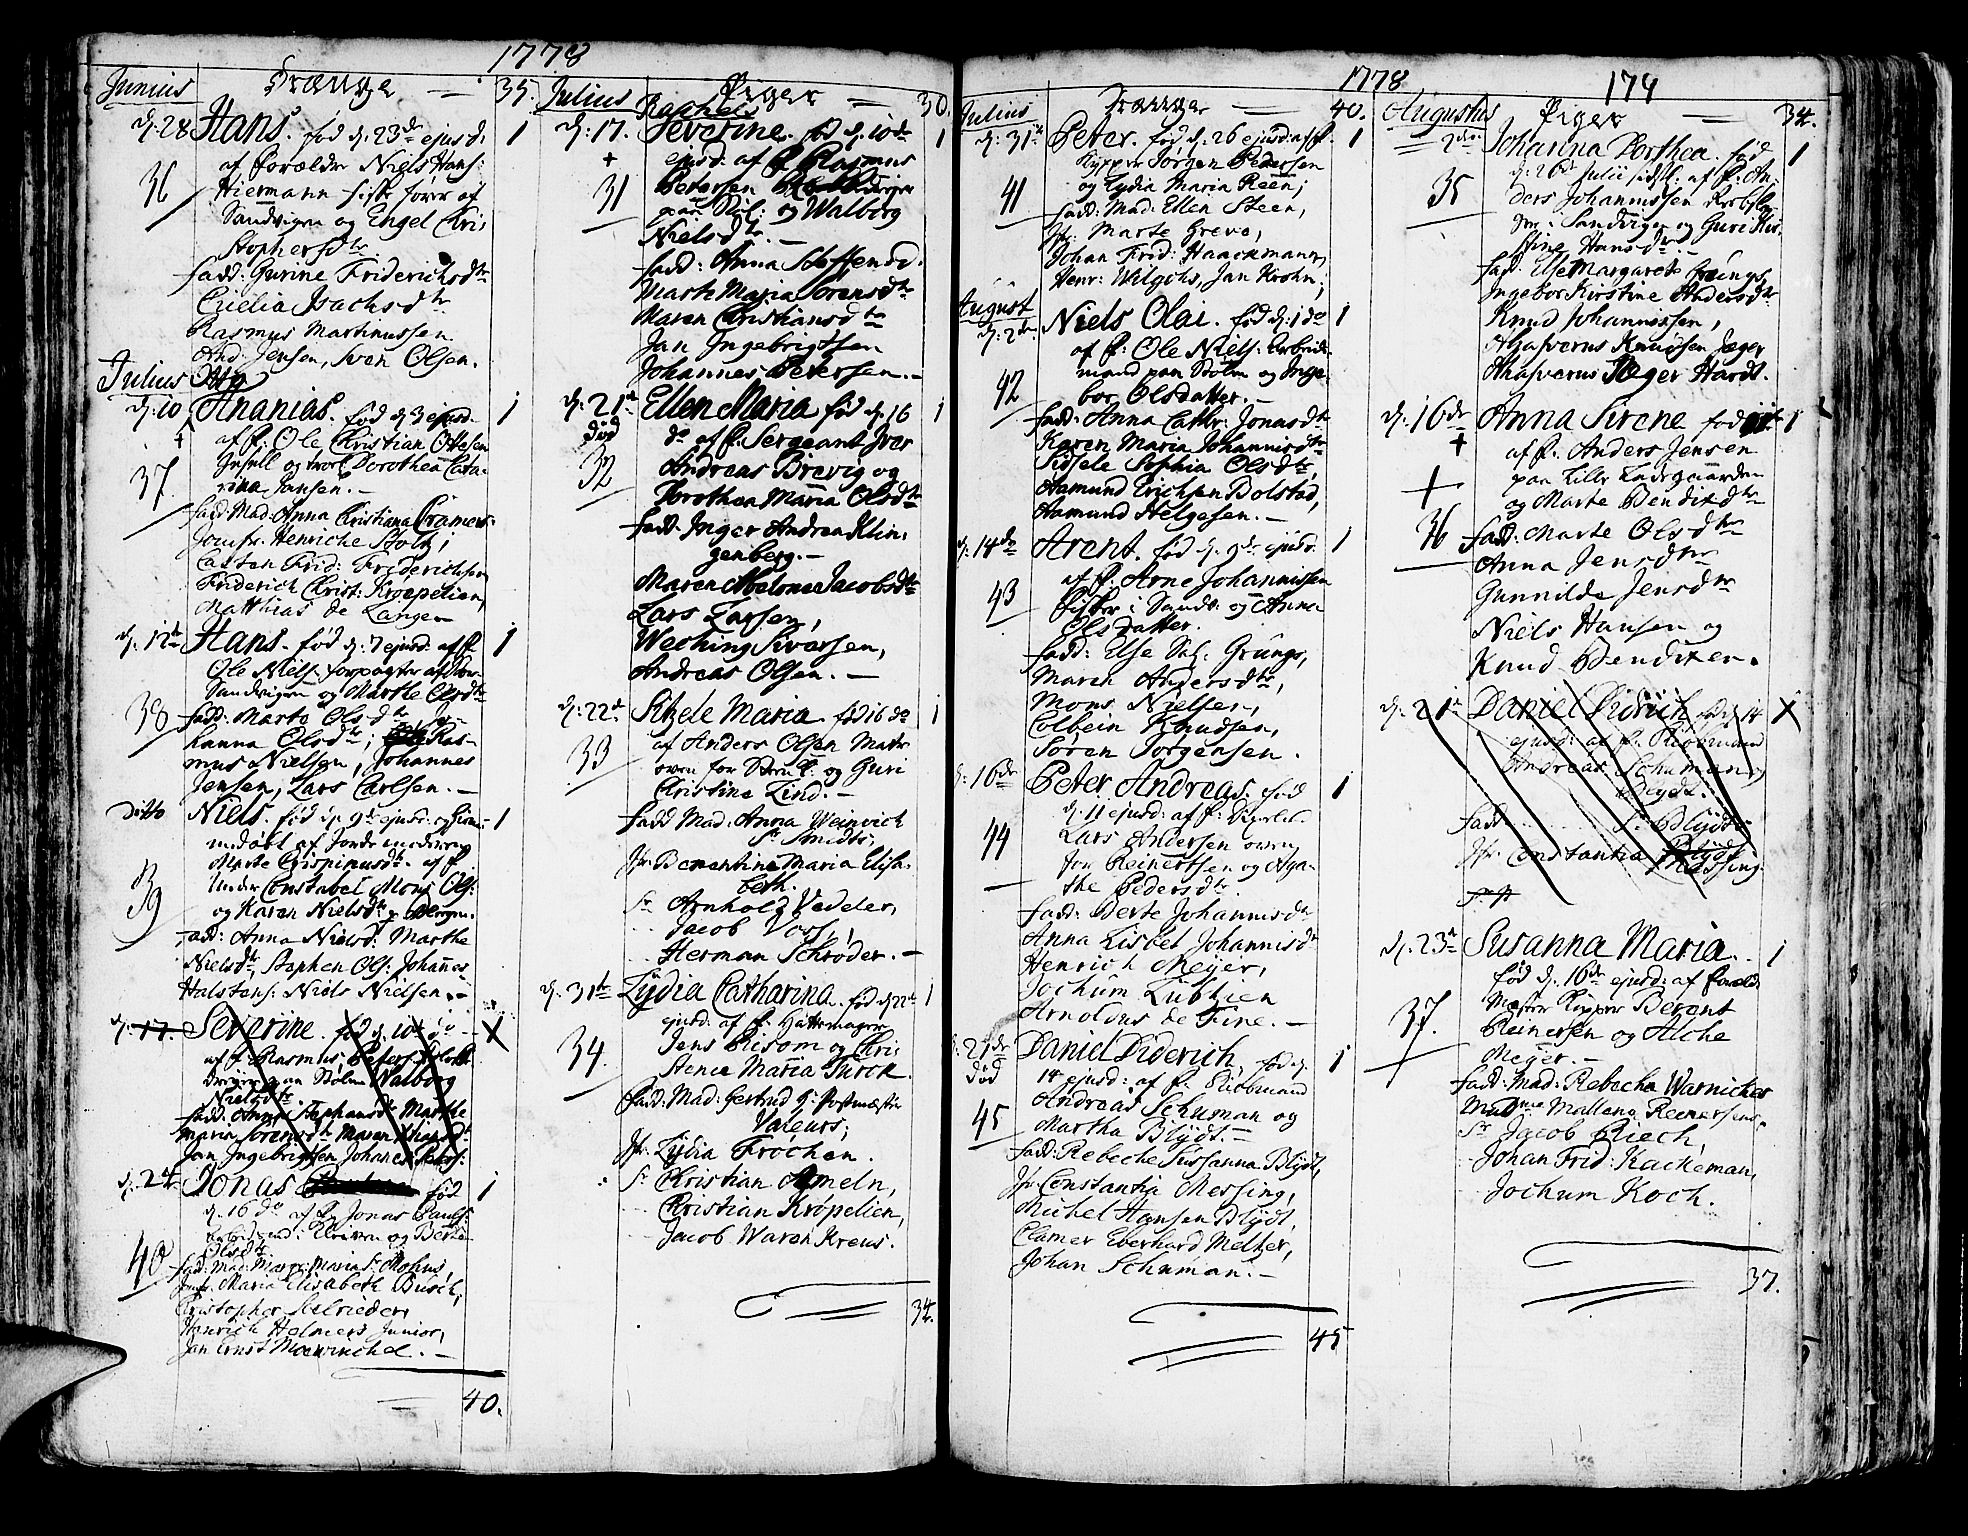 1778
Junius Drænge — 35.
d: 28 Hans. fød d. 23de ejusd. 1
36 af Forældre Niels Hans:
Hiermann
Sandvigen og Engel Chri-
stophersdtr
fadd: Gurine Friderichsdtr
Cicelia Isachsdtr
Rasmus Martinussen
And: Jensen, Sven Olsen.
Julius
d: 10 Ananias. fød d. 3 ejusd. 1
+ af f. Ole Christian Ottesen
37 og Dorothea Cata-
rina Jansen. —
fadd: Mad: Anna Christiana Cramers
Jomfr: Henriche Stolt;
Casten Frid: Friderichsen
Friderich Christ: Krøepelien,
Matthias de Lange
d. 12te Hans. fød d: 7 ejusd. af f. 1
Ole Niels. forpagter af
Sandvigen og Marthe Olsdtr
38 fadd: Marte Olsdtr, Jo-
hanna Olsdtr; Ras-
mus Nielsen, Johannes
Jensen, Lars Carlsen. —
Ditto Niels. fød d. 9de ejusd: og hiem- 1
medøbt af Jordemoderen
Marte Crispinusdtr. af f.
39 Under Constabel Mons Ols:
og Karen Nielsdtr
fadd: Anna Nielsd: Marthe
Nielsdtr, Stephen Ols: Johannes
Halstens: Niels Nielsen. —
d: 17. Severine. fød d. 10 X
af f. Rasmus Peters.
paa Stølen Walborg
Nielsdtr
fadd: Anna Stephansdtr Marthe
Maria Sørensdtr Maren
Jan Ingebrigtsen Johannes Peters:
d. 24 Jonas fød 1
d. 16 do af f. Jonas Pauls:
og Berthe
Olsdtr
40 fadd: Mad: Marg: Maria Sl. Mohns,
Jomfr. Maria Elisabeth Busch,
Christopher
Henrich Helmers Junior,
Jan Ernst
40.
Julius Piger — 30.
d: 17. Severine. fød d. 10de 1
+ ejusd: af f. Rasmus
31 Petersen
paa Støl: og Walborg
Nielsdtr. —
fadd: Anna Steffensd.
Marte Maria Sørensdtr
Maren Christiansdtr
Jan Ingebrigtsen
Johannes Petersen. —
d. 21de Ellen Maria fød d. 16 1
død do af f. Sergeant Iver
32 Andreas Brevig og
Dorothea Maria Olsdtr
fadd. Inger Andrea Klin-
genberg. —
Maren Abelone Jacobsdtr
Lars Larsen,
Weching Sivertsen,
Andreas Olsen. —
d: 22de Sitzele Maria. fød 16 do 1
33 af Anders Olsen Matr
oven for og Guri
Christine Lind. —
fadd Mad: Anna Weinvich
Sl. Smidts,
Jfr: Bernentine Maria Elisa-
beth.
Sr Arnhold Vedeler,
Jacob Voss,
Herman Schrøder. —
d. 31te Lydia Catharina. fød d 22de 1
ejusd: af f. Hattemager
34. Jens Risom og Chri-
stence Maria Turck
fadd: Mad: Gertrud Sl: Postmæster
Valeurs;
Jfr: Lydia Frøchen.
Sr Christian Ameln,
Christian Krøpelien,
Jacob Waren Krens.
34.
1778 174
Julius Drænge — 40.
d: 31te Peter. fød, d. 26 ejusd: af f. 1
Kypper Jørgen Pedersen
41 og Lydia Maria Reen;
fadd: Mad: Ellen Steen,
Jfr: Marte Greve,
Johan Frid: Haackmann,
Henr: Wilgohs, Jan Krohn;
August
d: 2de Niels Olai. fød d. 1 do 1
af f: Ole Niels: Arbeids-
42 mand paa Stølen og Inge-
bor Olsdatter. —
fadd: Anna Cathr: Jonasdtr
Karen Maria Johannisdtr
Sidsele Sophia Olsdtr
Aamund Erichsen Bolstad,
Aamund Helgesen. —
d. 14de Arent. fød d. 9de ejusd: 1
af f. Arne Johannissen
43 Fisker i Sandv: og Anna
Olsdatter.
fadd: Else Sal: Grungs,
Maren Andersdtr,
Mons Nielsen,
Colbein Knudsen,
Søren Jørgensen.
d: 16de Peter Andreas. fød 1
d. 11 ejusd: af f:
44 Lars Andersen oven
for Reinertsen og Aga-
the Pedersdtr.
fadd: Berte Johannisdtr
Anna Lisbet Johannisd.
Henrich Meyer,
Jochum Lübkien
Arnoldus de Fine. —
d. 21de Daniel Diderich, fød d. 1
død 14 ejusd: af f. Kiøbmand
45 Andreas Schuman og
Martha Blydt. —
fadd: Rebeche Sussanna Blydt,
Jfr: Constantia Messing,
Michel Hansen Blydt,
Clamer Eberhard Meltzer,
Johan Schuman. —
45
Augustus Piger — 34.
2de Johanna Dorthea. fød 1
d. 26de Julii sidstl: af f. An-
35 ders Johannissen
i Sandvigen og Guri Kir-
stine Hansdtr —
fad: Else Margarete Grungs
Ingebor Kirstine Andersdtr
Knud Johannissen,
Ahasverus Knudsen Jæger
Ahasverus Jæger Hardt.
d. 16de Anna Sirene fød 1
+ af f. Anders Jensen
paa Lille Lundgaarden
og Marte Bendixdtr
36 fadd: Marte Olsdtr
Anna Jensdtr
Gunnilde Jensdtr
Niels Hansen og
Knud Bendixen.
d: 21de Daniel Didrich fød d. 14 X
ejusd: af f. Kiøbmand
Andreas Schuman og
Blydt.
fadd Sr Blydt
Jfr: Constantia Messing
d: 23de Susanna Maria. 1
fød d. 16de ejusd: af Foreld:
37. Mester Kipper Berent
Reinersen og Alche
Meyer. —
fadd: Mad: Rebecha Warnichen
Madme Mallena Reinersens,
Sr Jacob Riech,
Johan Frid: Kackeman,
Jochum Koch.
37.